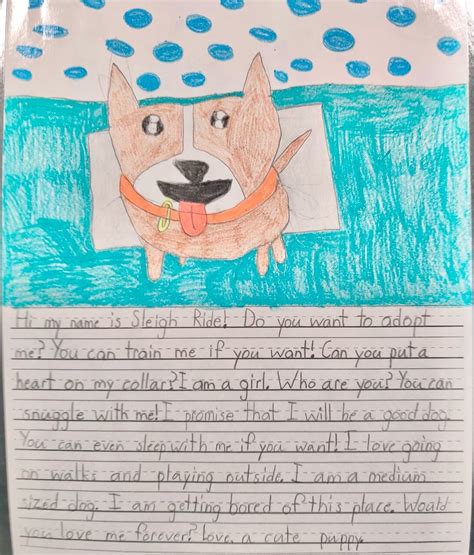 Hi my name is Sleigh Ride! Do you want to adopt
me? You can train me if you want! Can you put a
heart on my collar? I am a girl. Who are you? You can
snuggle with me! I promise that I will be a good dog.
You can even sleep with me if you want! I love going
on walks and playing outside. I am a medium
sized dog. I am getting bored of this place. Would
you love me forever? Love, a cute puppy